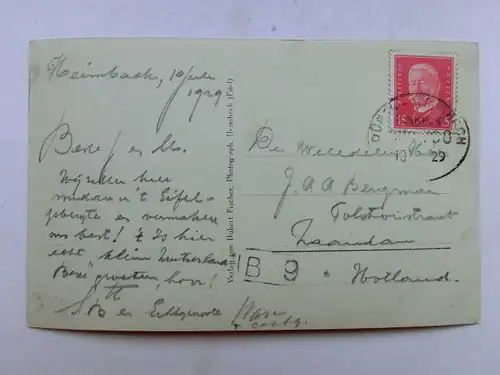 Heimbach, 10 Juli
1929
Beste
Wij zitten hier
midden in 't Eifel-
gebergte en vermaken
ons best! 't Is hier
echt "klein Zwitserland"
Beste groeten, hoor!
en Echtgenoote
Verlag von Hubert Fischer, Photograph, Heimbach (Eifel)
15
29
Den Weledelen Heer
J. A. A. Bergman
Tolstoistraat
Zaandam
B 9
Holland.